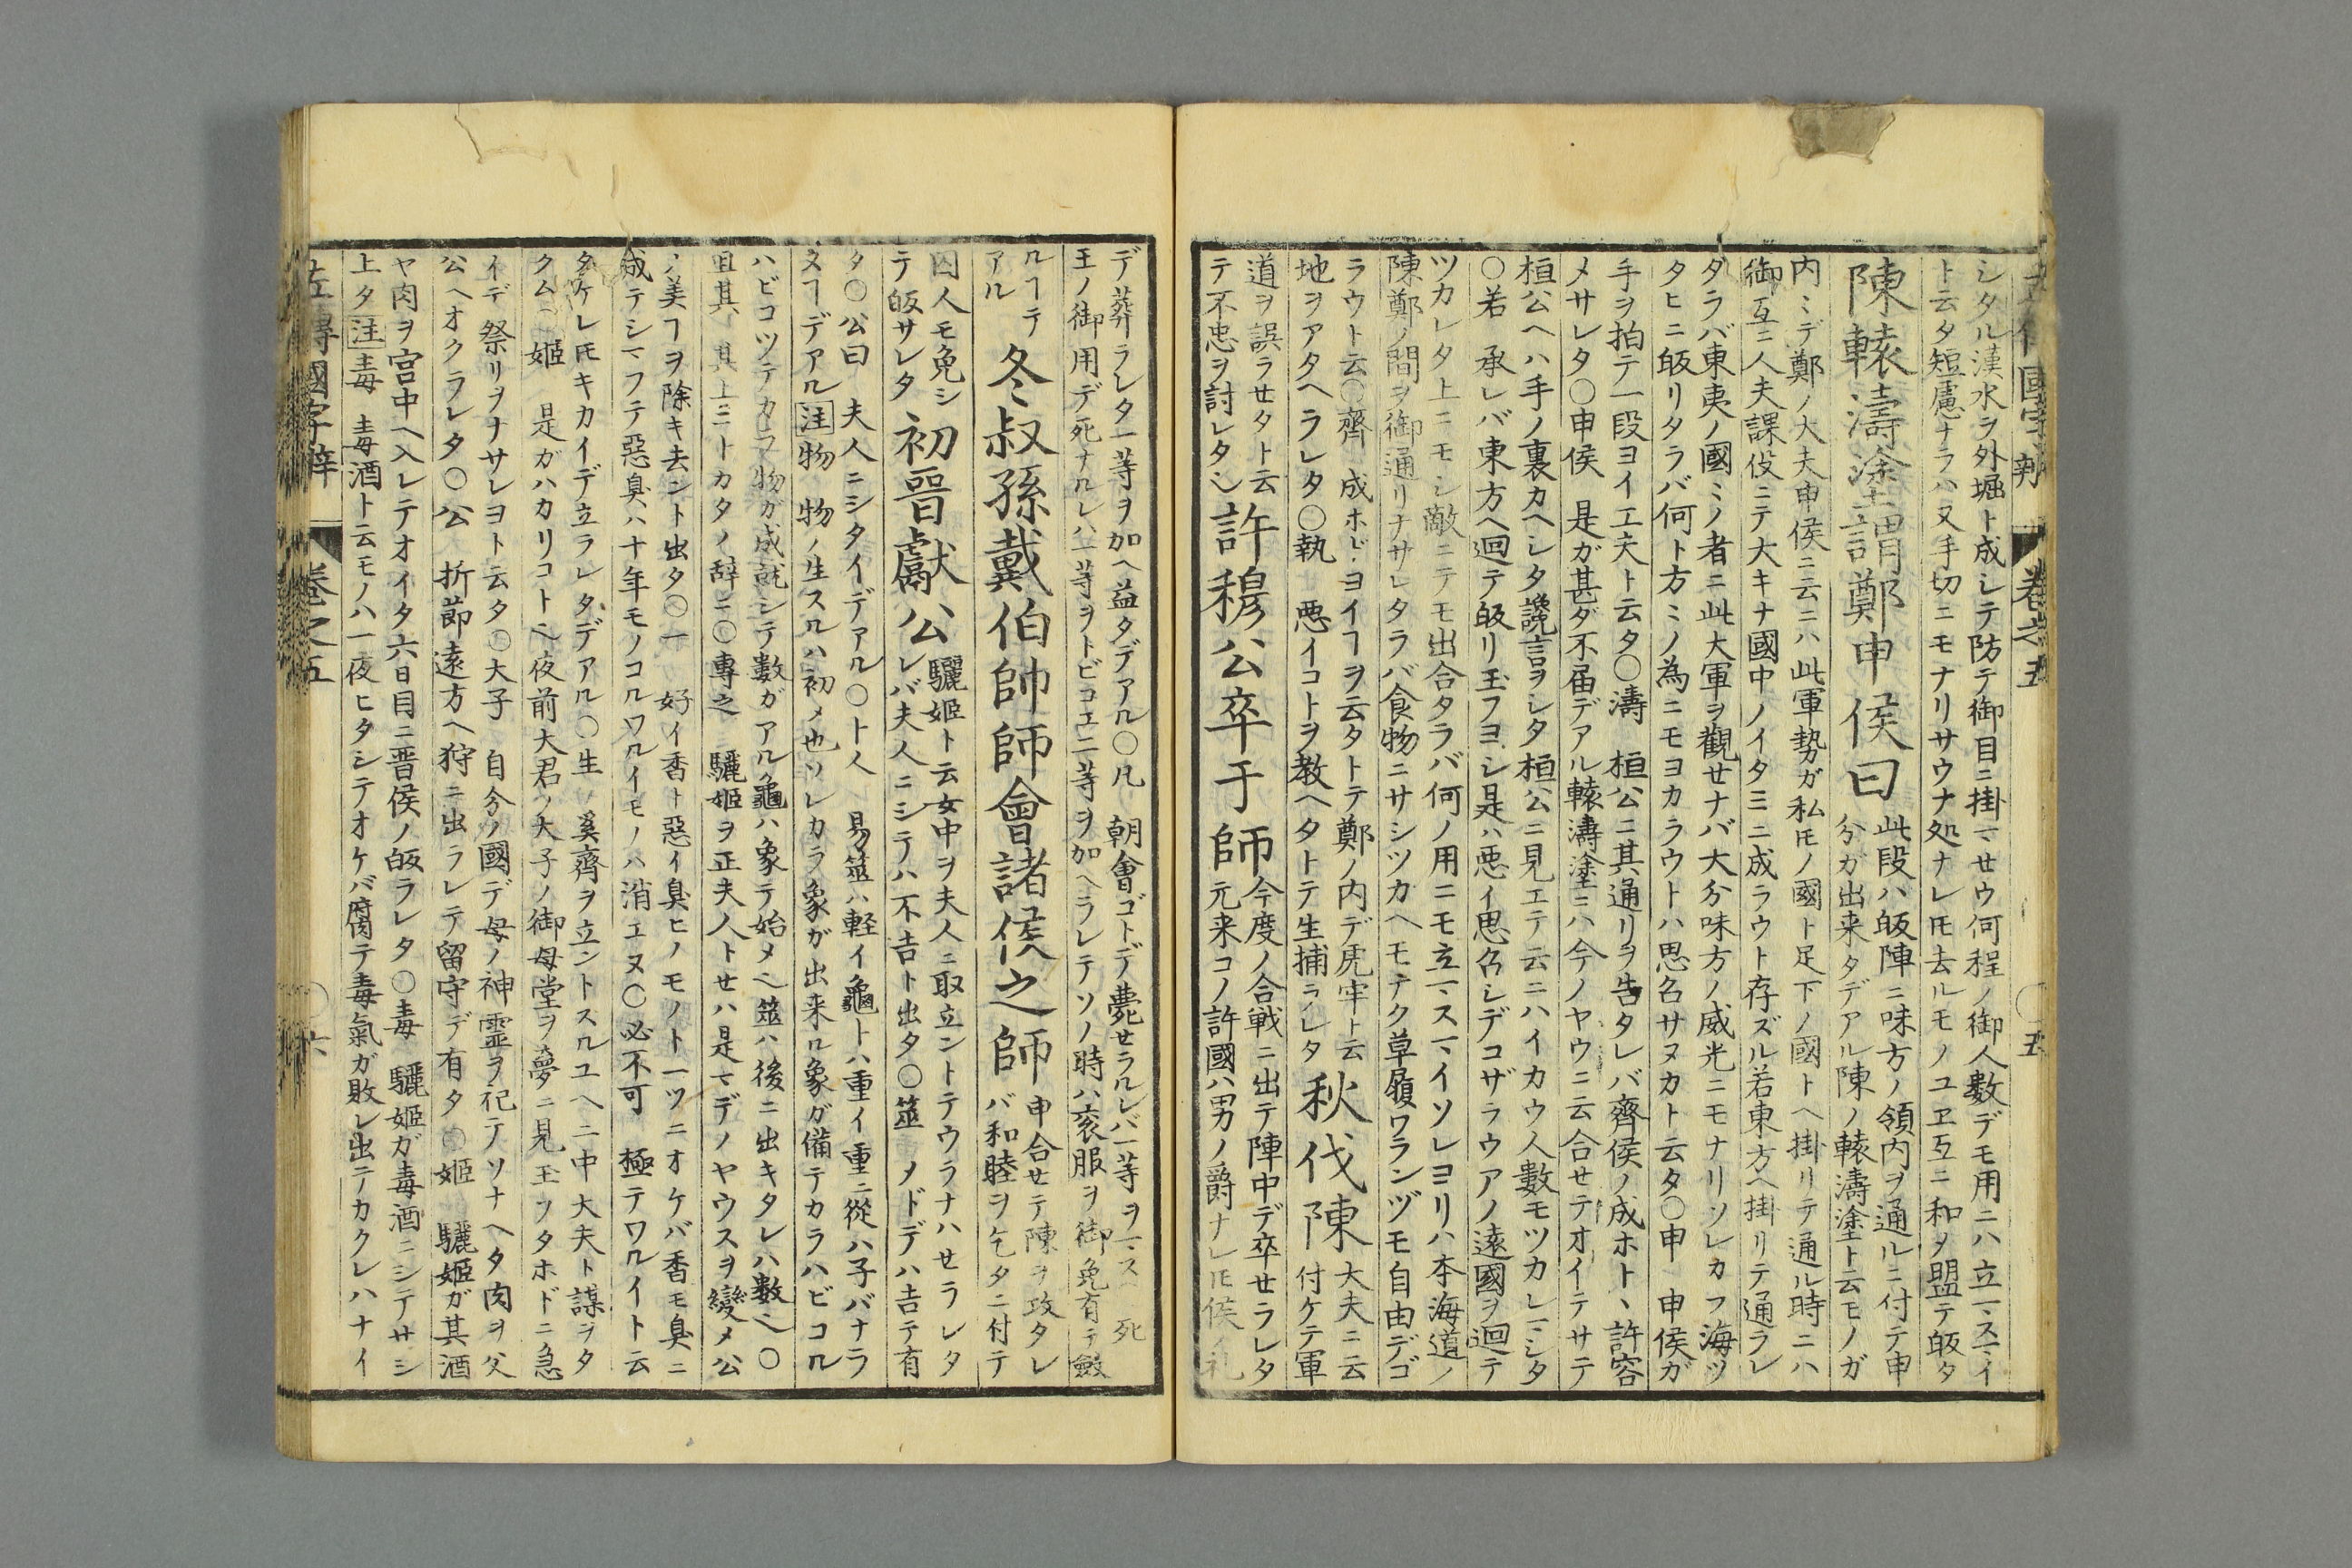 左傳國字辨 巻之五 〇五
シタル漢水ヲ外堀ト成シテ防テ御目ニ掛マセウ何程ノ御人數デモ用ニハ立マスマイ
ト云タ短慮ナラハ又手切ニモナリサウナ処ナレ𪜈去ルモノユヱ互ニ和ヲ盟テ皈タ
陳轅濤塗謂鄭申侯曰
此段ハ皈陣ニ味方ノ領内ヲ通ルニ付テ申
分ガ出来タデアル陳ノ轅濤塗ト云モノガ
内ミデ鄭ノ大夫申侯ニ云ニハ此軍勢ガ私𪜈ノ國ト足下ノ國トヘ掛リテ通ル時ニハ
御互ニ人夫課役ニテ大キナ國中ノイタミニ成ラウト存ズル若東方ヘ掛リテ通ラレ
ダラバ東夷ノ國ミノ者ニ此大軍ヲ觀せナバ大分味方ノ威光ニモナリソレカラ海ヅ
タヒニ皈リタラバ何ト方ミノ為ニモヨカラウトハ思召サヌカト云タ〇申 申侯ガ
手ヲ拍テ一段ヨイ工夫ト云タ〇濤 桓公ニ其通リヲ告タレバ齊侯ノ成ホト丶許容
メサレタ〇申侯 是ガ甚ダ不届デアル轅濤塗ニハ今ノヤウニ云合せテオイテサテ
桓公ヘハ手ノ裏カヘシタ讒言ヲシタ桓公ニ見エテ云ニハイカウ人數モツカレマシタ
〇若 承レバ東方ヘ迴テ皈リ玉フヨシ是ハ悪イ思召シデコザラウアノ遠國ヲ迴テ
ツカレタ上ニモシ敵ニテモ出合タラバ何ノ用ニモ立マスマイソレヨリハ本海道ノ
陳鄭ノ間ヲ御通リナサレタラバ食物ニサシツカヘモナク草履ワランヅモ自由デゴ
ラウト云〇齊 成ホドヨイヿヲ云タトテ鄭ノ内デ虎牢ト云
地ヲアタヘラレタ〇執 悪イコトヲ教ヘタトテ生捕ラレタ
秋伐陳
大夫ニ云
付ケテ軍
道ヲ誤ラせタト云
テ不忠ヲ討レタ〆
許穆公卒于師
今度ノ合戦ニ出テ陣中デ卒せラレタ
元来コノ許國ハ男ノ爵ナレ𪜈侯ノ礼
デ葬ラレタ一等ヲ加ヘ益タデアル〇凡 朝會ゴトデ薨せラルレバ一等ヲマス 死
王ノ御用デ死ナルレハ一等ヲトビコエ二等ヲ加ヘラレテソノ時ハ衮服ヲ御免有テ斂
ルヿテ
アル
冬叔孫戴伯帥師會諸侯之師
申合せテ陳ヲ攻タレ
バ和睦ヲ乞タニ付テ
囚人モ免シ
テ皈サレタ
初晉獻公
驪姬ト云女中ヲ夫人ニ取立ントテウラナハせラレタ
レバ夫人ニシテハ不吉ト出タ〇筮 メドデハ吉テ有
タ〇公曰 夫人ニシタイデアル〇卜人 易筮ハ軽イ龜トハ重イ重ニ從ハ子バナラ
ヌヿデアル注物 物ノ生スルハ初メ也ソレカラ象ガ出来ル象ガ備テカラハビコル
ハビコツテカラ物ガ成就シテ數ガアル龜ハ象テ始メ〆筮ハ後ニ出キタレハ數〆〇
且其 其上ニトカタノ辞ニ〇專之 驪姬ヲ正夫人トせハ是マデノヤウスヲ變メ公
ノ美ヿヲ除キ去ント出タ〇一 好イ香ト惡イ臭ヒノモノト一ツニオケバ香モ臭ニ
成テシマフテ惡臭ハ十年モノコルワルイモノハ消エヌ〇必不可 極テワルイト云
タケレ𪜈キカイデ立ラレタデアル〇生 奚齊ヲ立ントスルユヘ二中大夫ト謀ヲタ
クム〇姬 是ガハカリコト〆夜前大君ノ大子ノ御母堂ヲ夢ニ見玉ヲタホドニ急
イデ祭リヲナサレヨト云タ〇大子 自分ノ國デ母ノ神霊ヲ祀テソナヘタ肉ヲ父
公ヘオクラレタ〇公 折節遠方ヘ狩ニ出ラレテ留守デ有タ〇姬 驪姬ガ其酒
ヤ肉ヲ宮中ヘ入レテオイタ六日目ニ晋侯ノ皈ラレタ〇毒 驪姬ガ毒酒ニシテサシ
上タ注毒 毒酒ト云モノハ一夜ヒタシテオケバ腐テ毒氣ガ敗レ出テカクレハナイ
左傳國字辨 巻之五 〇六